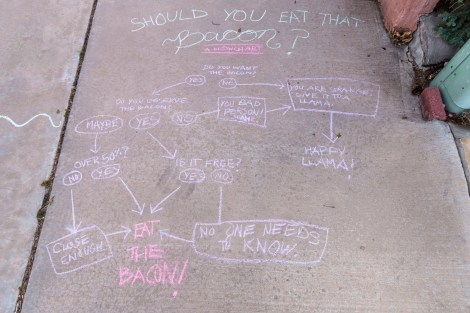 SHOULD YOU EAT THAT
Bacon?
A FLOWCHART
DO YOU WANT
THE BACON?
YES NO
YOU ARE WRONG.
GIVE IT TO A
LLAMA.
DO YOU DESERVE
THE BACON?
YOU BAD
PERSON!
MAYBE YES NO
HAPPY
LLAMA!
OVER 50%?
IS IT FREE?
NO YES
YES NO
CLOSE
ENOUGH
EAT
THE
BACON!
NO ONE NEEDS
TO KNOW.